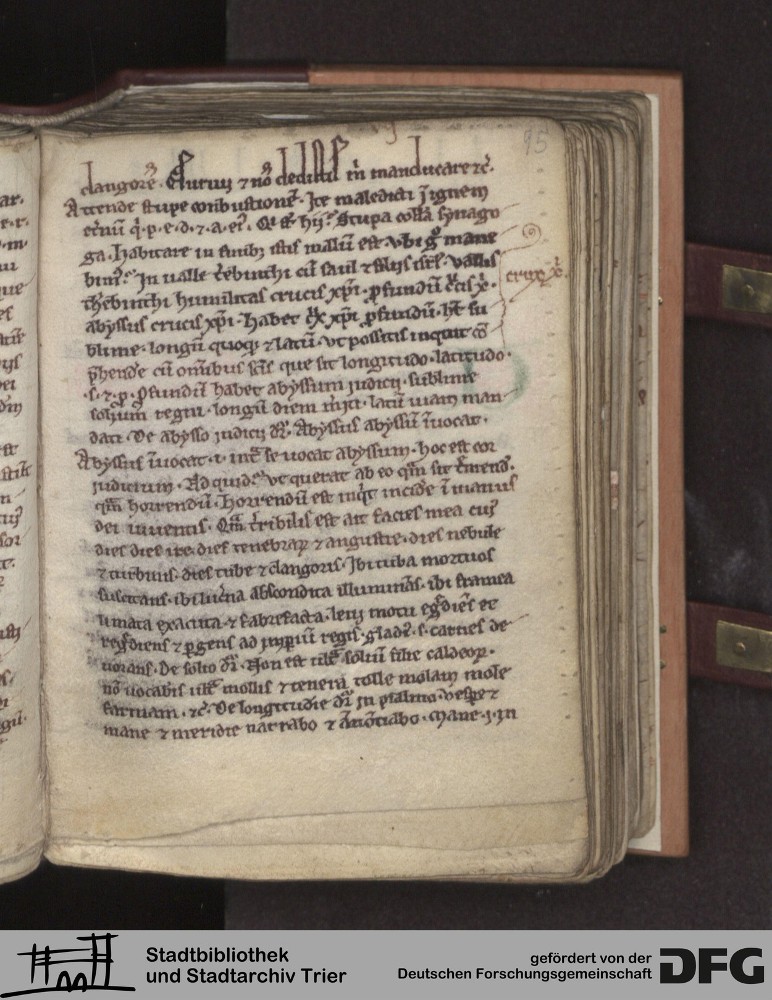 95
clangorē. Esuriui ⁊ nō dedistis m̄ manducare ⁊c̄.
Attende stupe conbustionē. Ite maledicti ī ignem
et̄nū q̄.p.e.d.⁊.a.ei᾽. Qi st̄ hij? Stupa coll̄a synago
ga. Habitare in finib; istis malū est. vbi ḡ mane
bim᾽? In ualle t̄ebinthi cū saul ⁊ filijs isrl̄. Vallis
therebinthi humilitas crucis xp̄i. ꝓfundū c̄cis x̄.
abyssus crucis xp̄i. Habet c̄x xp̄i ꝓfundū. h̄t su
blime. longū quoq; ⁊ latū. vt possitis inquit cō
p̄hendē cū omībus sc̄is que sit longitudo. latitudo.
.s.⁊.p. ꝓfundū habet abyssum judicij. sublime
solium regni. longū diem
dati. De abysso judicij dr̄. Abyssus abyssū īuocat.
Abyssus īuocat .i. int̄ se uocat abyssum. hoc est cor
judicium. Ad quid? vt querat ab eo q̄m sit
q̄m horrendū. Horrendū est inq̄t incidē ī manus
dei uiuentis. Q̄m t̄ribilis est ait facies mea cui᾽
dies dies ire. dies tenebraꝝ ⁊ angustie. dies nebule
⁊ turbinis. dies tube ⁊ clangoris. Ibi tuba mortuos
suscitans. ibi luc̄na abscondita illuminās. ibi framea
limata exacuta ⁊ fabrefacta. leui motu eḡdiēs et
reḡdiens ⁊ ꝑgens ad jmꝑiū regis. gladi᾽ .s. carnes de
uorans. De solio dr̄. Non est soliū filie caldeoꝝ.
nō uocab̄is mollis ⁊ tenera tolle molam mole
farinam. ⁊c̄. De longitudīe dr̄ jn psalmo. vespe ⁊
mane ⁊ meridie narrabo ⁊ ānūtiabo. Mane .j. jn
crux x̄.
Stadtbibliothek
und Stadtarchiv Trier
gefördert von der
Deutschen Forschungsgemeinschaft
DFG